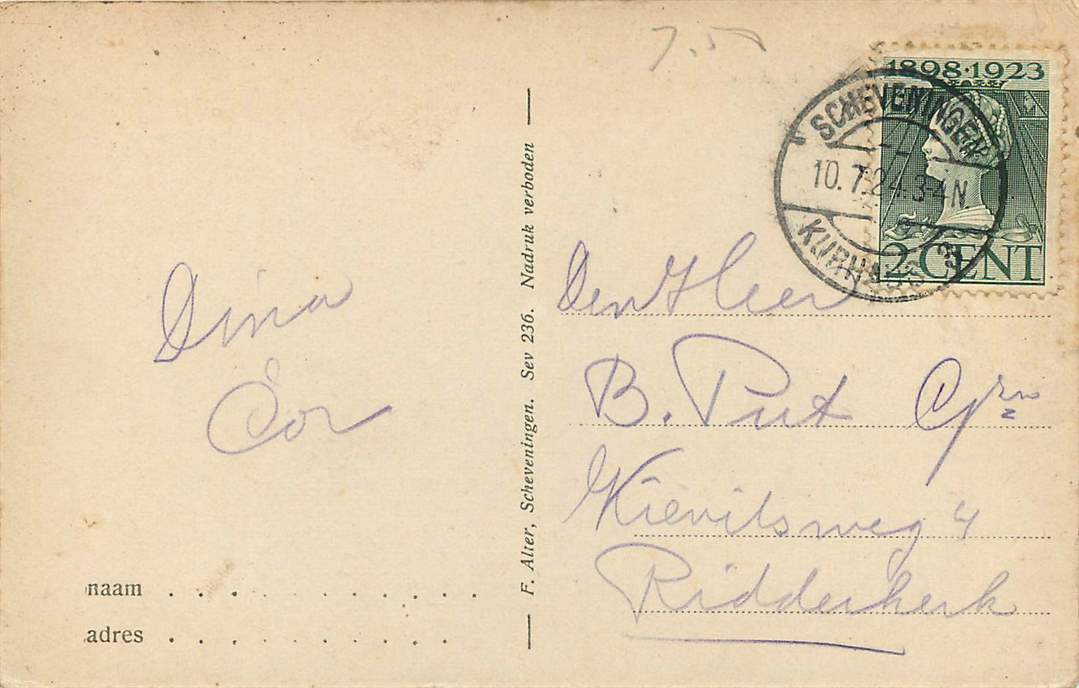 7.50
1898·1923
2 CENT
SCHEVENINGEN
10.7.24.3-4N
KURHAUS
Dina
Cor
F. Alter, Scheveningen. Sev 236. Nadruk verboden
Den Heer
B. Put Gzn
Kievitsweg 4
Ridderkerk
naam . . . . . . . . . .
adres . . . . . . . . . .